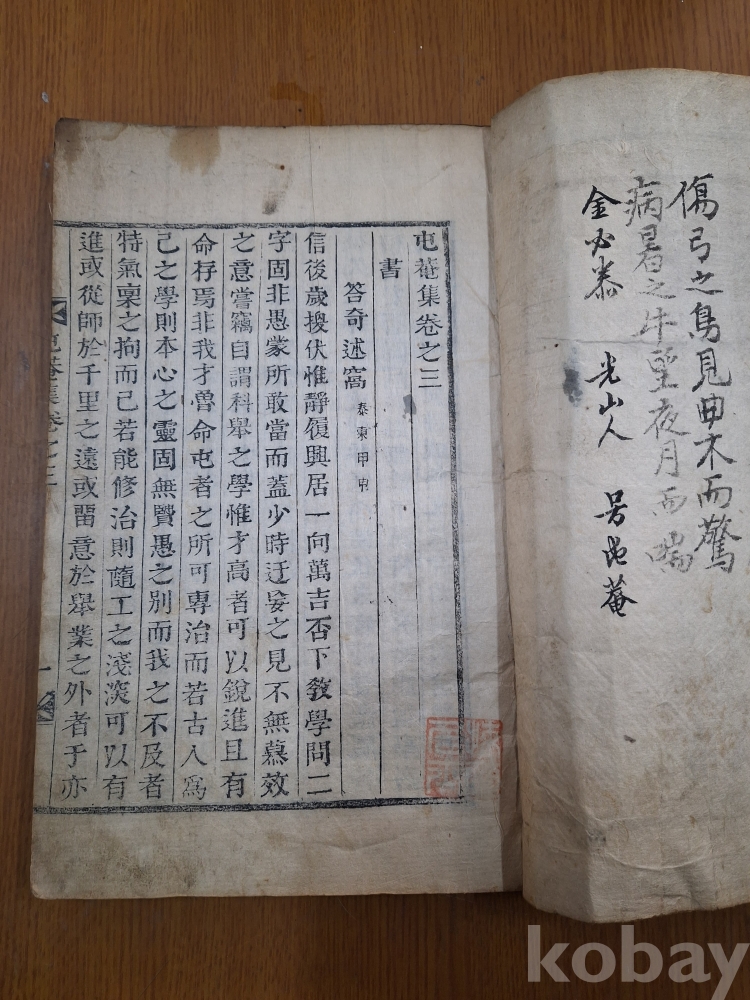 傷弓之鳥見曲木而驚
病暑之牛望夜月而喘
金必泰 光山人 号屯菴
屯菴集卷之三
書
答奇述窩 泰東甲申
信後歲換伏惟靜履興居一向萬吉否下教學問二
字固非愚蒙所敢當而蓋少時迂妄之見不無慕效
之意嘗竊自謂科舉之學惟才高者可以銳進且有
命存焉非我才魯命屯者之所可專治而若古人爲
己之學則本心之靈固無賢愚之別而我之不及者
特氣稟之拘而已若能修治則隨工之淺深可以有
進或從師於千里之遠或留意於舉業之外者于亦
屯菴集卷之三
一
kobay